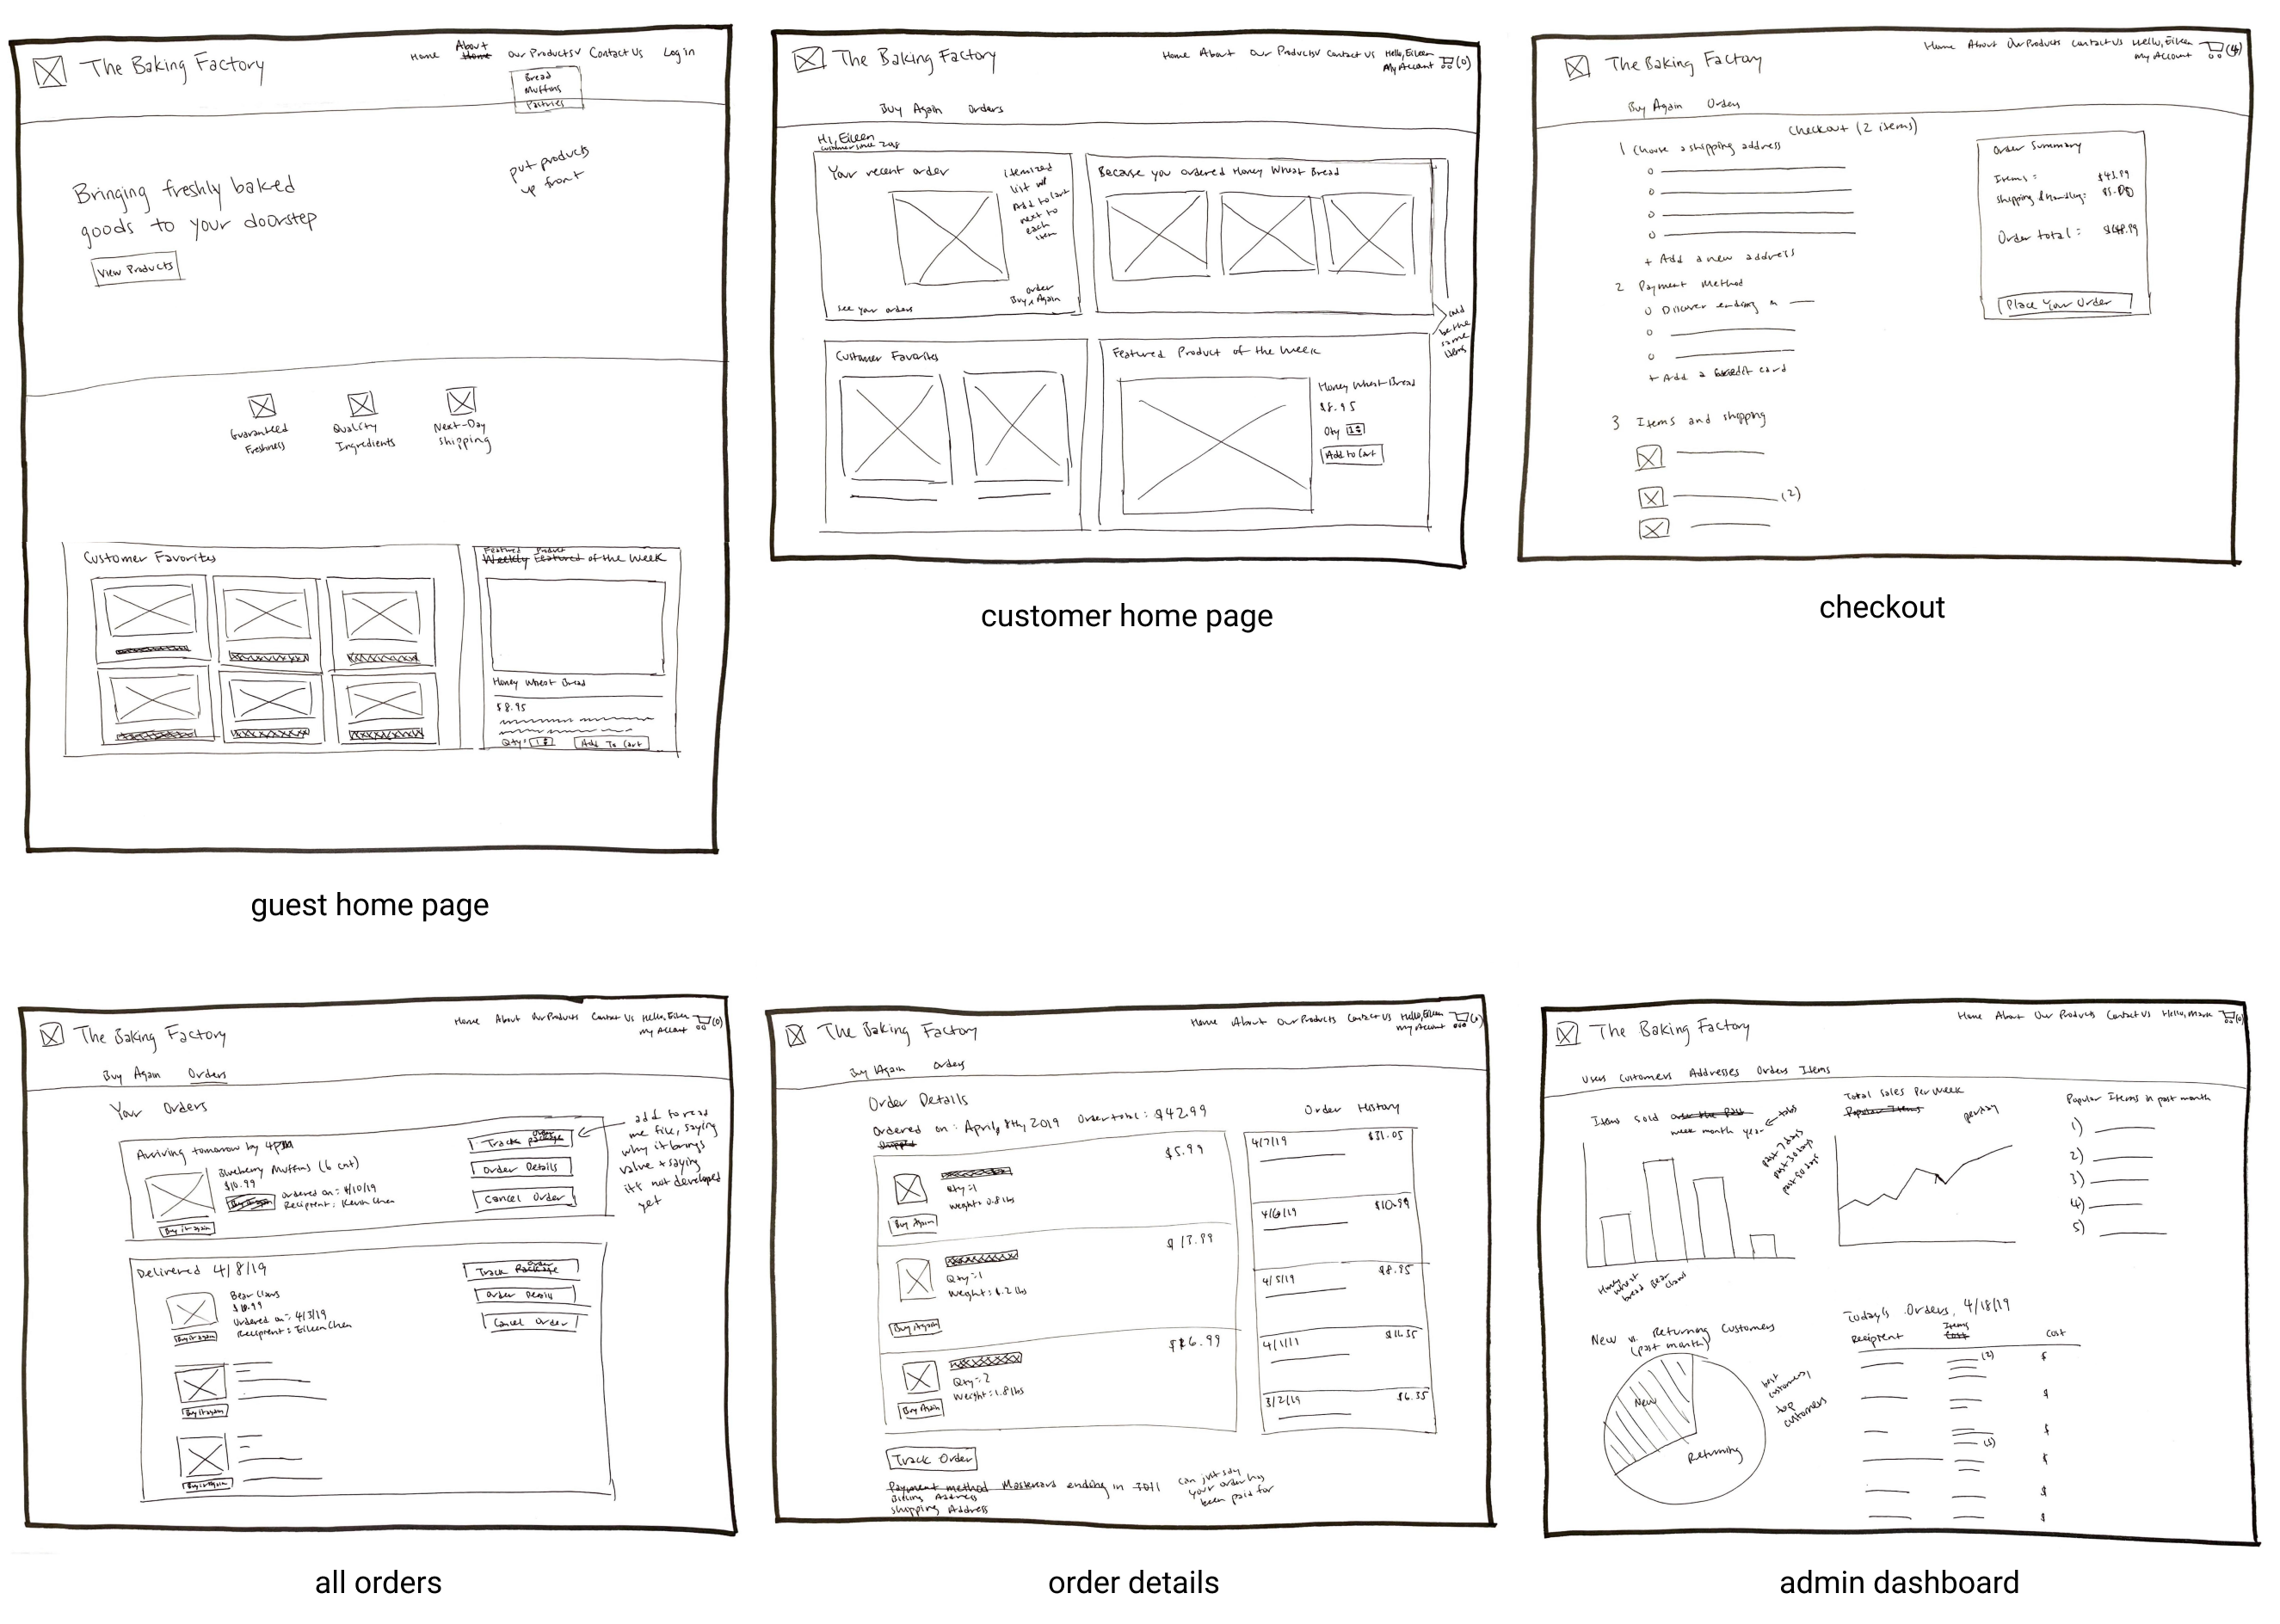 The Baking Factory
Home About Our Products Contact Us Log in
Home
Bread
Muffins
Pastries
Bringing freshly baked
goods to your doorstep
View Products
put products
up front
Guaranteed
Freshness
Quality
Ingredients
Next-Day
shipping
Customer Favorites
Featured Product
Weekly Featured of the Week
Honey Wheat Bread
$8.95
Qty: 1
Add To Cart
guest home page
The Baking Factory
Home About Our Products Contact Us Hello, Eileen
My Account (0)
Buy Again Orders
Hi, Eileen
Your recent order
itemized
list w/
Add to Cart
next to
each
item
see your orders
order
Buy Again
Because you ordered Honey Wheat Bread
could
be the
same
items
Customer Favorites
Featured Product of the Week
Honey Wheat Bread
$8.95
Qty 1
Add to Cart
customer home page
The Baking Factory
Home About Our Products Contact Us Hello, Eileen
My Account (4)
Buy Again Orders
Checkout (2 items)
1 Choose a shipping address
+ Add a new address
2 Payment Method
Discover ending in
+ Add a credit card
3 Items and shipping
(2)
Order Summary
Items: $43.99
Shipping & Handling: $5.00
Order total: $48.99
Place Your Order
checkout
The Baking Factory
Home About Our Products Contact Us Hello, Eileen
My Account (0)
Buy Again Orders
Your Orders
Arriving tomorrow by 4PM
Blueberry Muffins (6 cnt)
$10.99
Ordered on: 4/10/19
Recipient: Kevin Chen
Buy it again
Track Package
order
Order Details
Cancel Order
add to read
me file, saying
why it brings
value + saying
it's not developed
yet
Delivered 4/8/19
Bear Claws
$10.99
Ordered on: 4/3/19
Recipient: Eileen Chen
Buy it again
Track Package
order
Order Details
Cancel Order
Buy it again
Buy it again
all orders
The Baking Factory
Home About Our Products Contact Us Hello, Eileen
My Account
Buy Again Orders
Order Details
Ordered on: April 8th, 2019 Order total: $42.99
Shipped
$5.99
Qty: 1
Weight: 0.8 lbs
Buy Again
$13.99
Qty: 1
Weight: 1.2 lbs
Buy it again
Qty: 2
Weight: 1.8 lbs
Buy Again
Order History
4/7/19 $31.05
4/6/19 $10.99
4/5/19 $8.95
4/1/11
3/2/19 $6.35
Track Order
Payment method Mastercard ending in
Billing Address
Shipping Address
can just say
your order has
been paid for
order details
The Baking Factory
Home About Our Products Contact Us Hello, Mark
Users Customers Addresses Orders Items
Items sold over the Past
week month year tabs
past 7 days
past 30 days
Honey
wheat
bread
Bear
Claws
Total Sales Per Week
Popular Items
per day
Popular Items in past month
1)
2)
3)
4)
5)
New vs. Returning Customers
(past month)
New
Returning
best
customers,
top
customers
Today's Orders, 4/18/19
Recipient Items Cost
Cost
(2) $
$
$
(3) $
$
$
admin dashboard